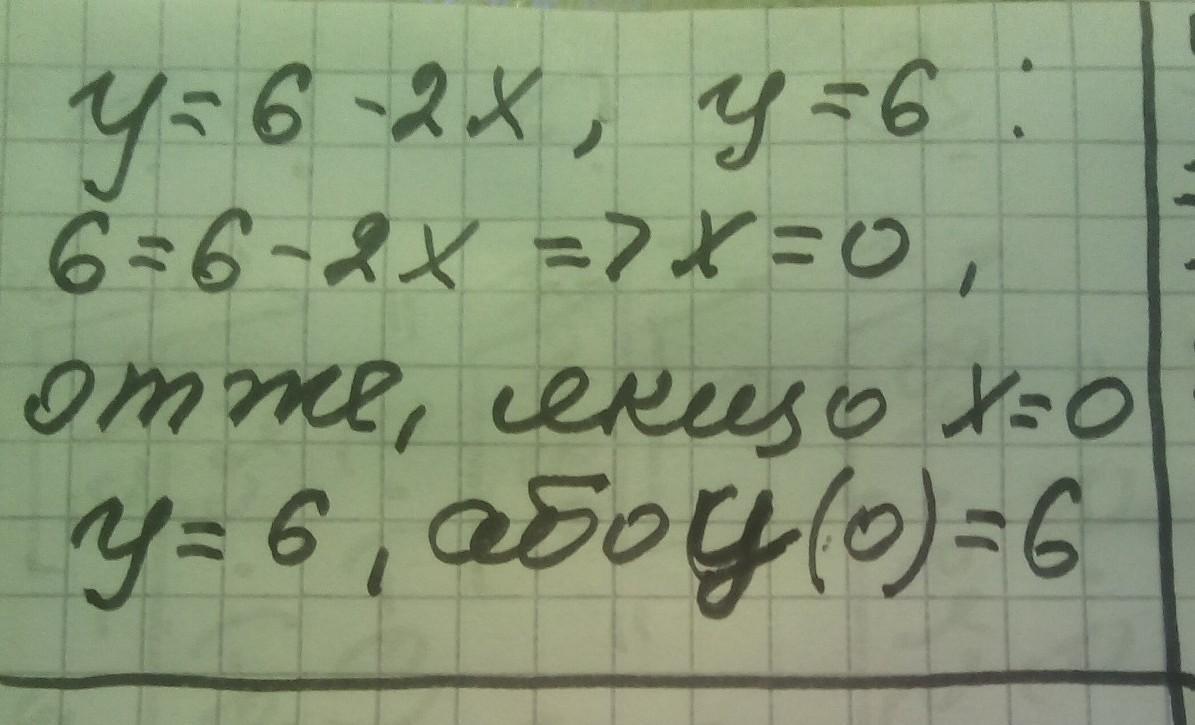 y = 6 - 2x, y = 6 :
6 = 6 - 2x => x = 0,
отже, якщо x = 0
y = 6, або y(0) = 6